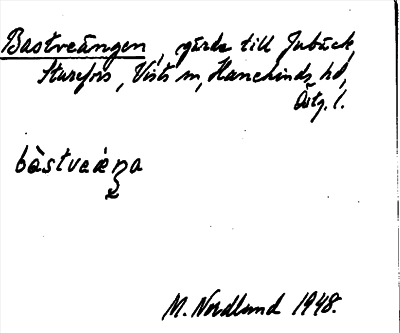 Bastveängen, gärde till Jubäck,
Sturefors, Vists sn, Hanekinds hd,
Östg. l.
bàstveáŋa
M. Nordlund 1948.